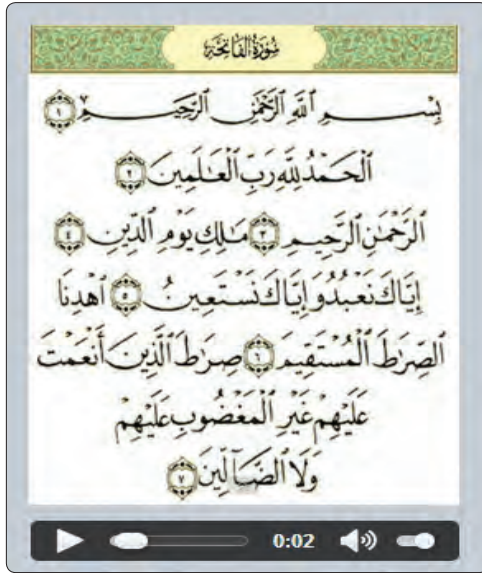 سُورَةُ الفَاتِحَةِ
بِسْمِ ٱللَّهِ ٱلرَّحْمَٰنِ ٱلرَّحِيمِ ١
ٱلْحَمْدُ لِلَّهِ رَبِّ ٱلْعَٰلَمِينَ ٢
ٱلرَّحْمَٰنِ ٱلرَّحِيمِ ٣ مَٰلِكِ يَوْمِ ٱلدِّينِ ٤
إِيَّاكَ نَعْبُدُ وَإِيَّاكَ نَسْتَعِينُ ٥ ٱهْدِنَا
ٱلصِّرَٰطَ ٱلْمُسْتَقِيمَ ٦ صِرَٰطَ ٱلَّذِينَ أَنْعَمْتَ
عَلَيْهِمْ غَيْرِ ٱلْمَغْضُوبِ عَلَيْهِمْ
وَلَا ٱلضَّآلِّينَ ٧
0:02